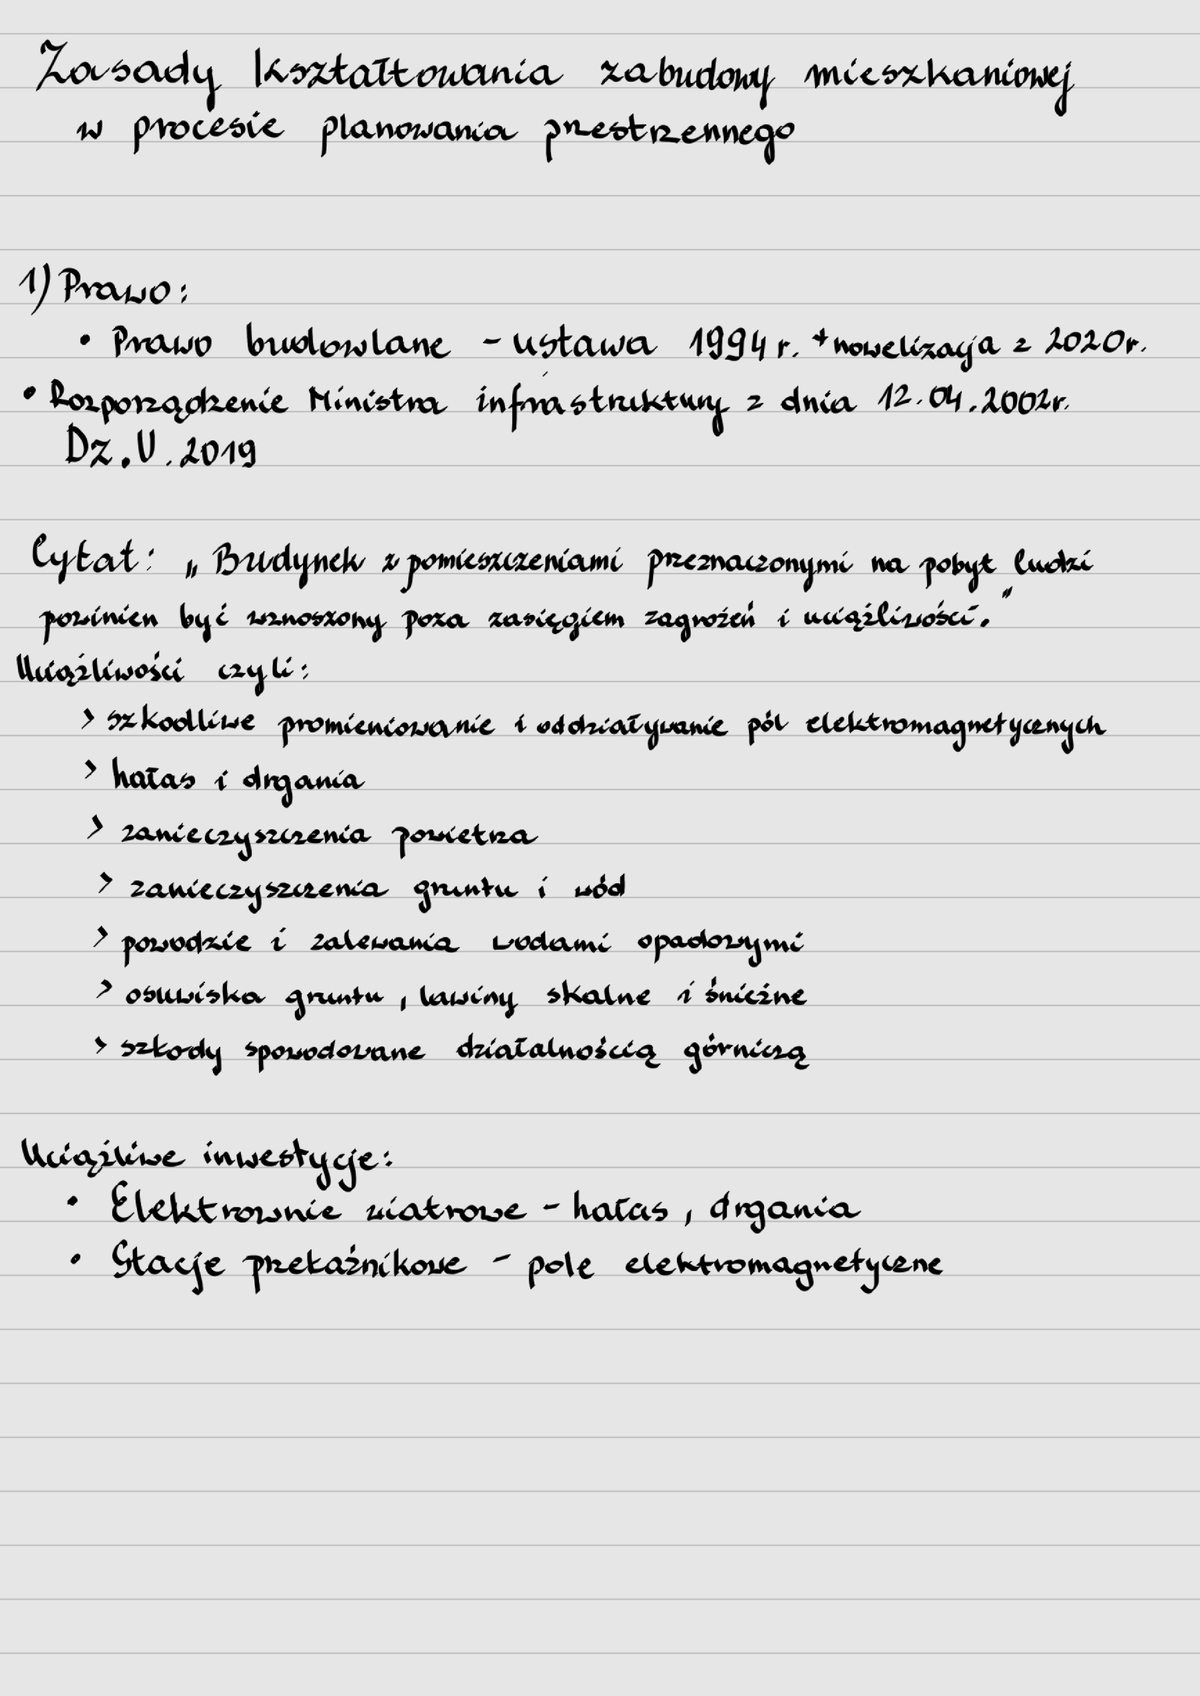 Zasady kształtowania zabudowy mieszkaniowej
w procesie planowania przestrzennego
1) Prawo:
• Prawo budowlane - ustawa 1994 r. + nowelizacja z 2020r.
• Rozporządzenie Ministra infrastruktury z dnia 12.04.2002r.
Dz.U.2019
Cytat: „Budynek z pomieszczeniami przeznaczonymi na pobyt ludzi
powinien być wznoszony poza zasięgiem zagrożeń i uciążliwości."
Uciążliwości czyli:
> szkodliwe promieniowanie i oddziaływanie pól elektromagnetycznych
> hałas i drgania
> zanieczyszczenia powietrza
> zanieczyszczenia gruntu i wód
> powodzie i zalewania wodami opadowymi
> osuwiska gruntu, lawiny skalne i śnieżne
> szkody spowodowane działalnością górniczą
Uciążliwe inwestycje:
• Elektrownie wiatrowe - hałas, drgania
• Stacje przekaźnikowe - pole elektromagnetyczne